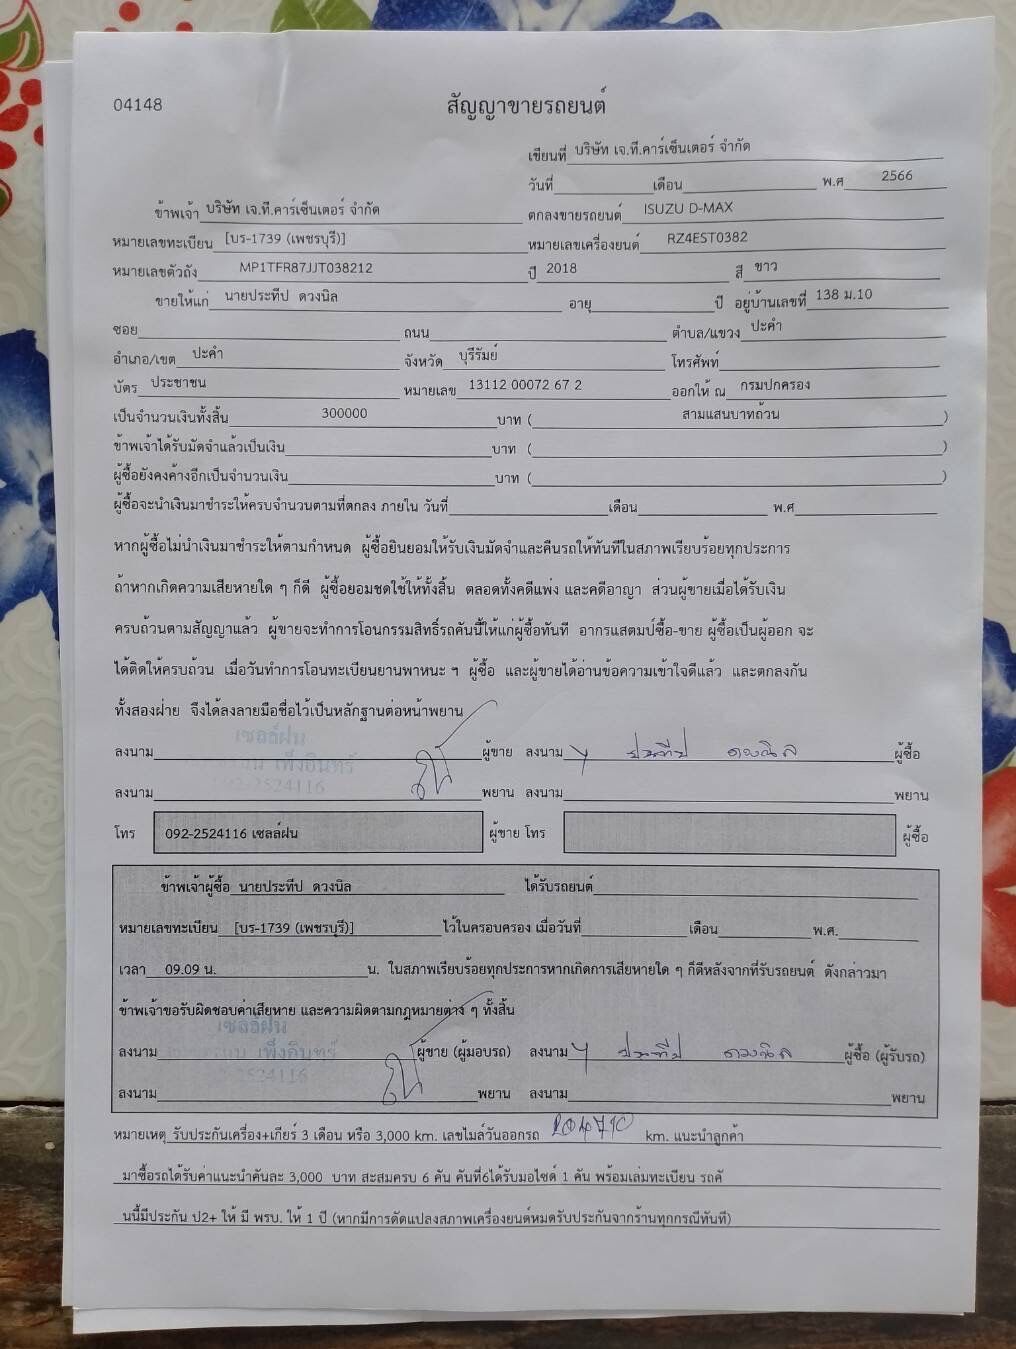 04148
สัญญาขายรถยนต์
เขียนที่ บริษัท เจ.ที.คาร์เซ็นเตอร์ จำกัด
วันที่ เดือน พ.ศ 2566
ข้าพเจ้า บริษัท เจ.ที.คาร์เซ็นเตอร์ จำกัด ตกลงขายรถยนต์ ISUZU D-MAX
หมายเลขทะเบียน [บร-1739 (เพชรบุรี)] หมายเลขเครื่องยนต์ RZ4EST0382
หมายเลขตัวถัง MP1TFR87JJT038212 ปี 2018 สี ขาว
ขายให้แก่ นายประทีป ดวงนิล อายุ ปี อยู่บ้านเลขที่ 138 ม.10
ซอย ถนน ตำบล/แขวง ปะคำ
อำเภอ/เขต ปะคำ จังหวัด บุรีรัมย์ โทรศัพท์
บัตร ประชาชน หมายเลข 13112 00072 67 2 ออกให้ ณ กรมปกครอง
เป็นจำนวนเงินทั้งสิ้น 300000 บาท ( สามแสนบาทถ้วน )
ข้าพเจ้าได้รับมัดจำแล้วเป็นเงิน บาท ( )
ผู้ซื้อยังคงค้างอีกเป็นจำนวนเงิน บาท ( )
ผู้ซื้อจะนำเงินมาชำระให้ครบจำนวนตามที่ตกลง ภายใน วันที่ เดือน พ.ศ
หากผู้ซื้อไม่นำเงินมาชำระให้ตามกำหนด ผู้ซื้อยินยอมให้รับเงินมัดจำและคืนรถให้ทันทีในสภาพเรียบร้อยทุกประการ
ถ้าหากเกิดความเสียหายใด ๆ ก็ดี ผู้ซื้อยอมชดใช้ให้ทั้งสิ้น ตลอดทั้งคดีแพ่ง และคดีอาญา ส่วนผู้ขายเมื่อได้รับเงิน
ครบถ้วนตามสัญญาแล้ว ผู้ขายจะทำการโอนกรรมสิทธิ์รถคันนี้ให้แก่ผู้ซื้อทันที อากรแสตมป์ซื้อ-ขาย ผู้ซื้อเป็นผู้ออก จะ
ได้ติดให้ครบถ้วน เมื่อวันทำการโอนทะเบียนยานพาหนะ ฯ ผู้ซื้อ และผู้ขายได้อ่านข้อความเข้าใจดีแล้ว และตกลงกัน
ทั้งสองฝ่าย จึงได้ลงลายมือชื่อไว้เป็นหลักฐานต่อหน้าพยาน
เซลล์ฝน
เพ็งอินทร์
092-2524116
ลงนาม ผู้ขาย ลงนาม ประทีป ดวงนิล ผู้ซื้อ
ลงนาม พยาน ลงนาม พยาน
โทร 092-2524116 เซลล์ฝน ผู้ขาย โทร ผู้ซื้อ
ข้าพเจ้าผู้ซื้อ นายประทีป ดวงนิล ได้รับรถยนต์
หมายเลขทะเบียน [บร-1739 (เพชรบุรี)] ไว้ในครอบครอง เมื่อวันที่ เดือน พ.ศ.
เวลา 09.09 น. น. ในสภาพเรียบร้อยทุกประการหากเกิดการเสียหายใด ๆ ก็ดีหลังจากที่รับรถยนต์ ดังกล่าวมา
ข้าพเจ้าขอรับผิดชอบค่าเสียหาย และความผิดตามกฎหมายต่าง ๆ ทั้งสิ้น
เซลล์ฝน
เพ็งอินทร์
2524116
ลงนาม ผู้ขาย (ผู้มอบรถ) ลงนาม ประทีป ดวงนิล ผู้ซื้อ (ผู้รับรถ)
ลงนาม พยาน ลงนาม พยาน
หมายเหตุ รับประกันเครื่อง+เกียร์ 3 เดือน หรือ 3,000 km. เลขไมล์วันออกรถ km. แนะนำลูกค้า
มาซื้อรถได้รับค่าแนะนำคันละ 3,000 บาท สะสมครบ 6 คัน คันที่6ได้รับมอไซด์ 1 คัน พร้อมเล่มทะเบียน รถคั
นนี้มีประกัน ป2+ ให้ มี พรบ. ให้ 1 ปี (หากมีการดัดแปลงสภาพเครื่องยนต์หมดรับประกันจากร้านทุกกรณีทันที)